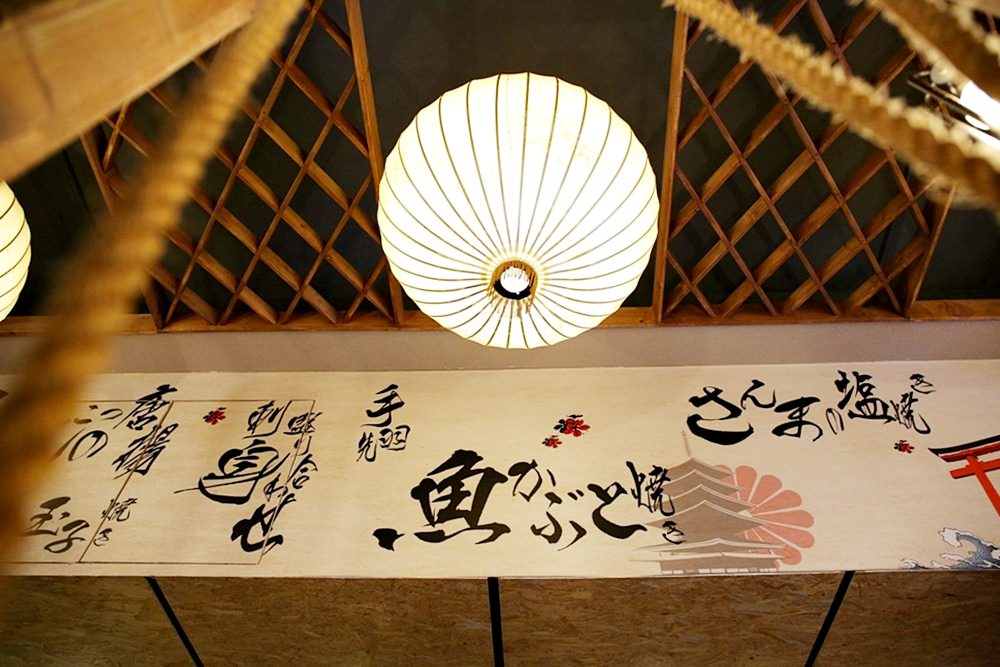 さんまの塩焼き
魚かぶと焼き
手羽先
刺身盛り合わせ
唐揚
玉子焼き